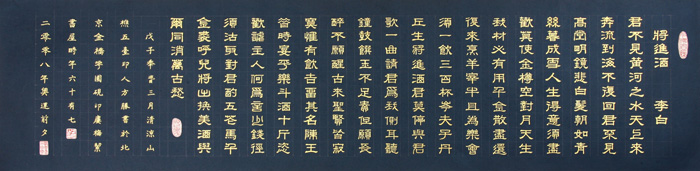 將進酒 李白
君不見黃河之水天上來
奔流到海不復回君不見
高堂明鏡悲白髮朝如青
絲暮成雪人生得意須盡
歡莫使金樽空對月天生
我材必有用千金散盡還
復來烹羊宰牛且為樂會
須一飲三百杯岑夫子丹
丘生將進酒君莫停與君
歌一曲請君為我側耳聽
鐘鼓饌玉不足貴但願長
醉不願醒古來聖賢皆寂
寞惟有飲者留其名陳王
昔時宴平樂斗酒十斤恣
歡謔主人何為言少錢徑
須沽取對君酌五花馬千
金裘呼兒將出換美酒與
爾同消萬古愁
戊子季春三月清涼山
樵五臺印人方勝書於北
京金橋學國硯印廬梅
書屋時年六十有七
二零零八年奧運前夕